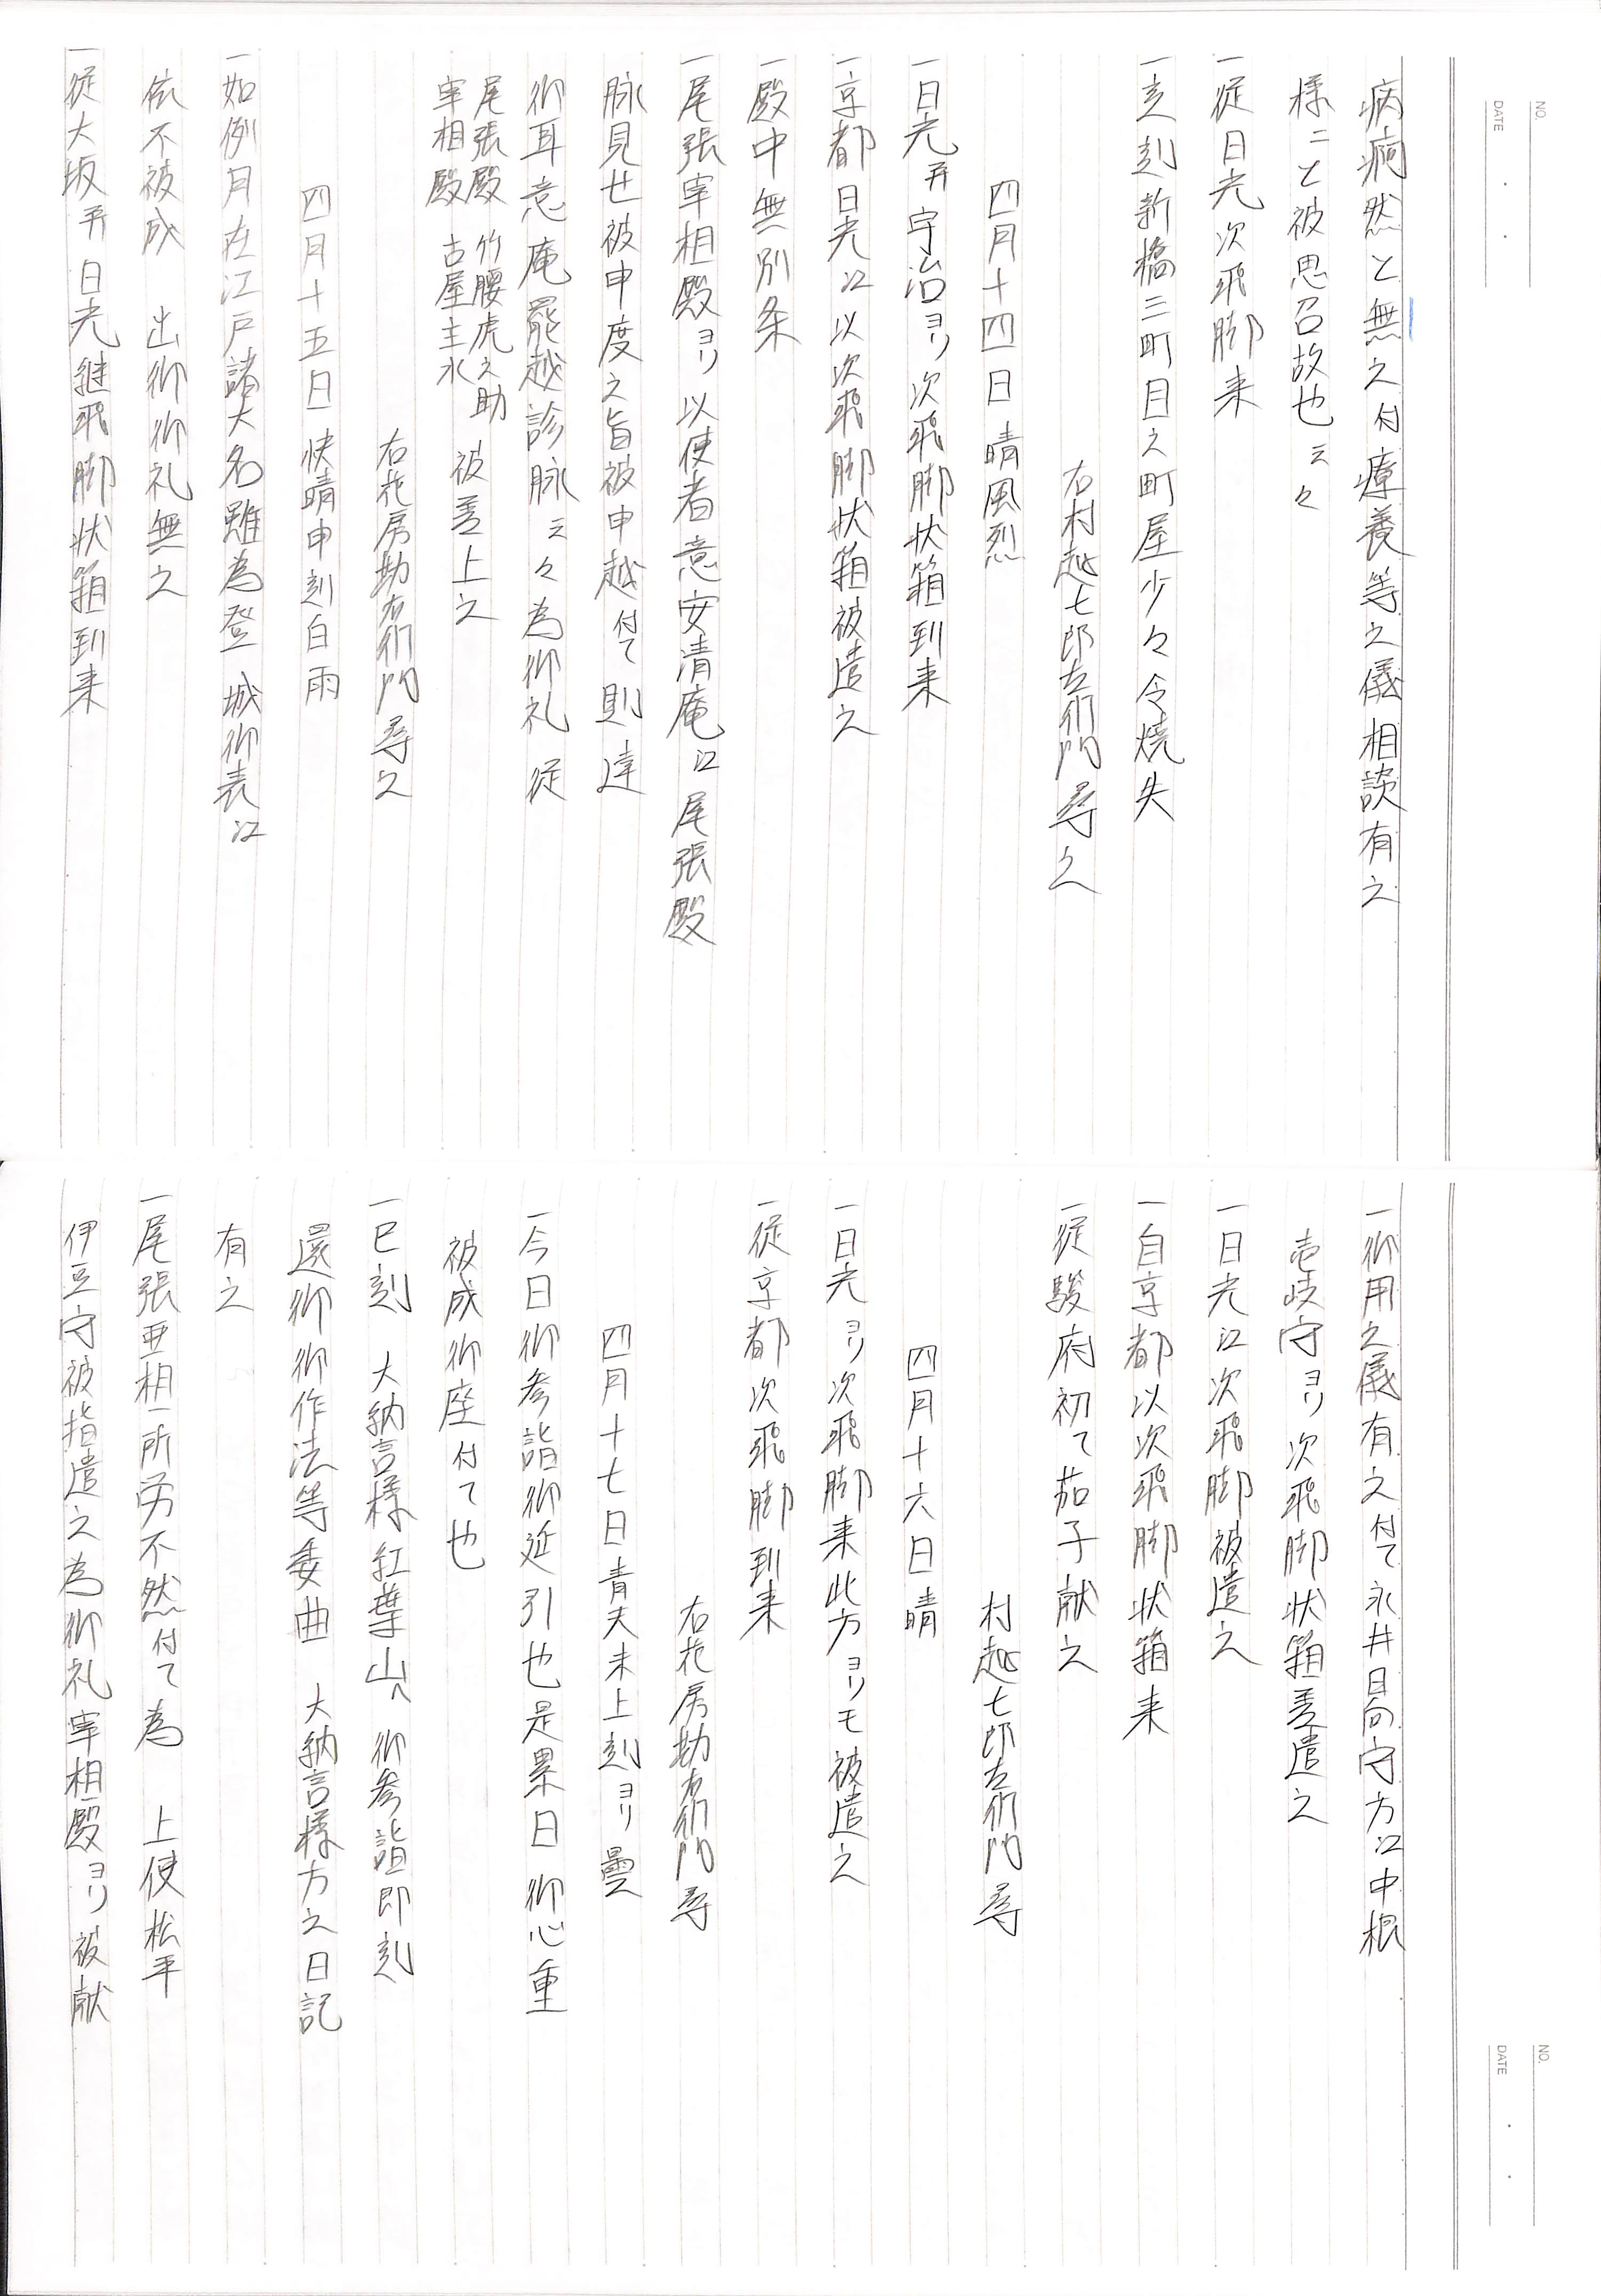 病痾然と無之付療養等之儀相談有之
様ニと被思召故也云々
一従日光次飛脚来
一亥刻新橋三町目之町屋少々令焼失
右村越七郎左衛門尋之
四月十四日晴風烈
一日光并宇治ヨリ次飛脚状箱到来
一京都日光江以次飛脚状箱被遣之
一殿中無別条
一尾張宰相殿ヨリ以使者意安清庵江尾張殿
脉見せ被申度之旨被申越付て則達
御耳意庵罷越診脉云々為御礼従
尾張殿 竹腰虎之助
宰相殿 古屋主水 被差上之
右花房勘右衛門尋之
四月十五日快晴申刻白雨
一如例月在江戸諸大名雖為登 城御表江
依不被成 出御御礼無之
一従大坂并日光継飛脚状箱到来
NO.
DATE
一御用之儀有之付て永井日向守方江中根
壱岐守ヨリ次飛脚状箱差遣之
一日光江次飛脚被遣之
一自京都以次飛脚状箱来
一従駿府初て茄子献之
村越七郎左衛門尋
四月十六日晴
一日光ヨリ次飛脚来此方ヨリモ被遣之
一従京都次飛脚到来
右花房勘右衛門尋
四月十七日青天未上刻ヨリ曇
一今日御参詣御延引也是累日御心重
被成御座付て也
一巳刻 大納言様紅葉山へ御参詣即刻
還御御作法等委曲 大納言様方之日記
有之
一尾張亜相所労不然付て為 上使松平
伊豆守被指遣之為御礼宰相殿ヨリ被献
NO.
DATE